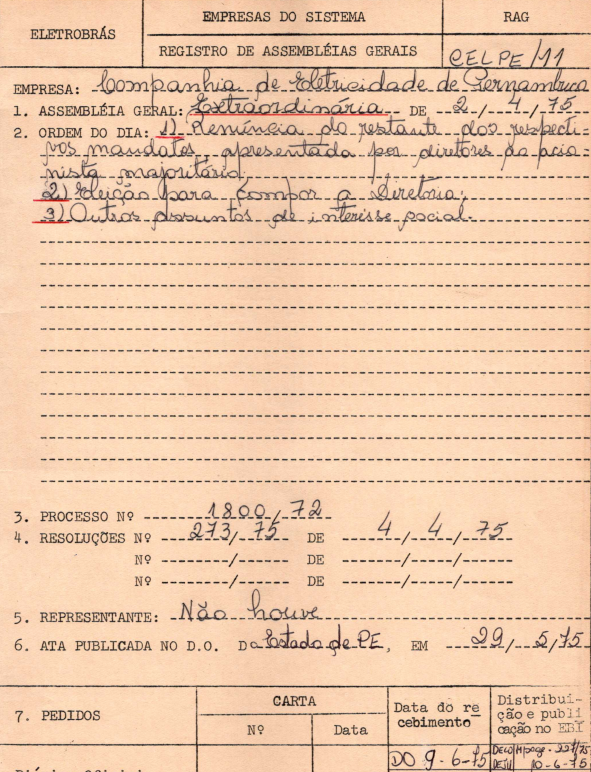 ELETROBRÁS
EMPRESAS DO SISTEMA
RAG
REGISTRO DE ASSEMBLÉIAS GERAIS
CELPE/11
EMPRESA: Companhia de Eletricidade de Pernambuco
1. ASSEMBLÉIA GERAL: Extraordinária DE 2 / 4 / 75
2. ORDEM DO DIA: 1) Renúncia do restante dos respecti-
vos mandatos, apresentada por diretores do acio-
nista majoritário;
2) Eleição para compor a Diretoria;
3) Outros assuntos de interisse social.
3. PROCESSO Nº 1800/72
4. RESOLUÇÕES Nº 273/75 DE 4 / 4 / 75
Nº / DE / /
Nº / DE / /
5. REPRESENTANTE: Não houve
6. ATA PUBLICADA NO D.O. Do Estado de PE, EM 29/5/75
7. PEDIDOS
CARTA
Nº
Data
Data do re
cebimento
Distribui-
ção e publi
cação no EBI
DO 9-6-75
10-6-75